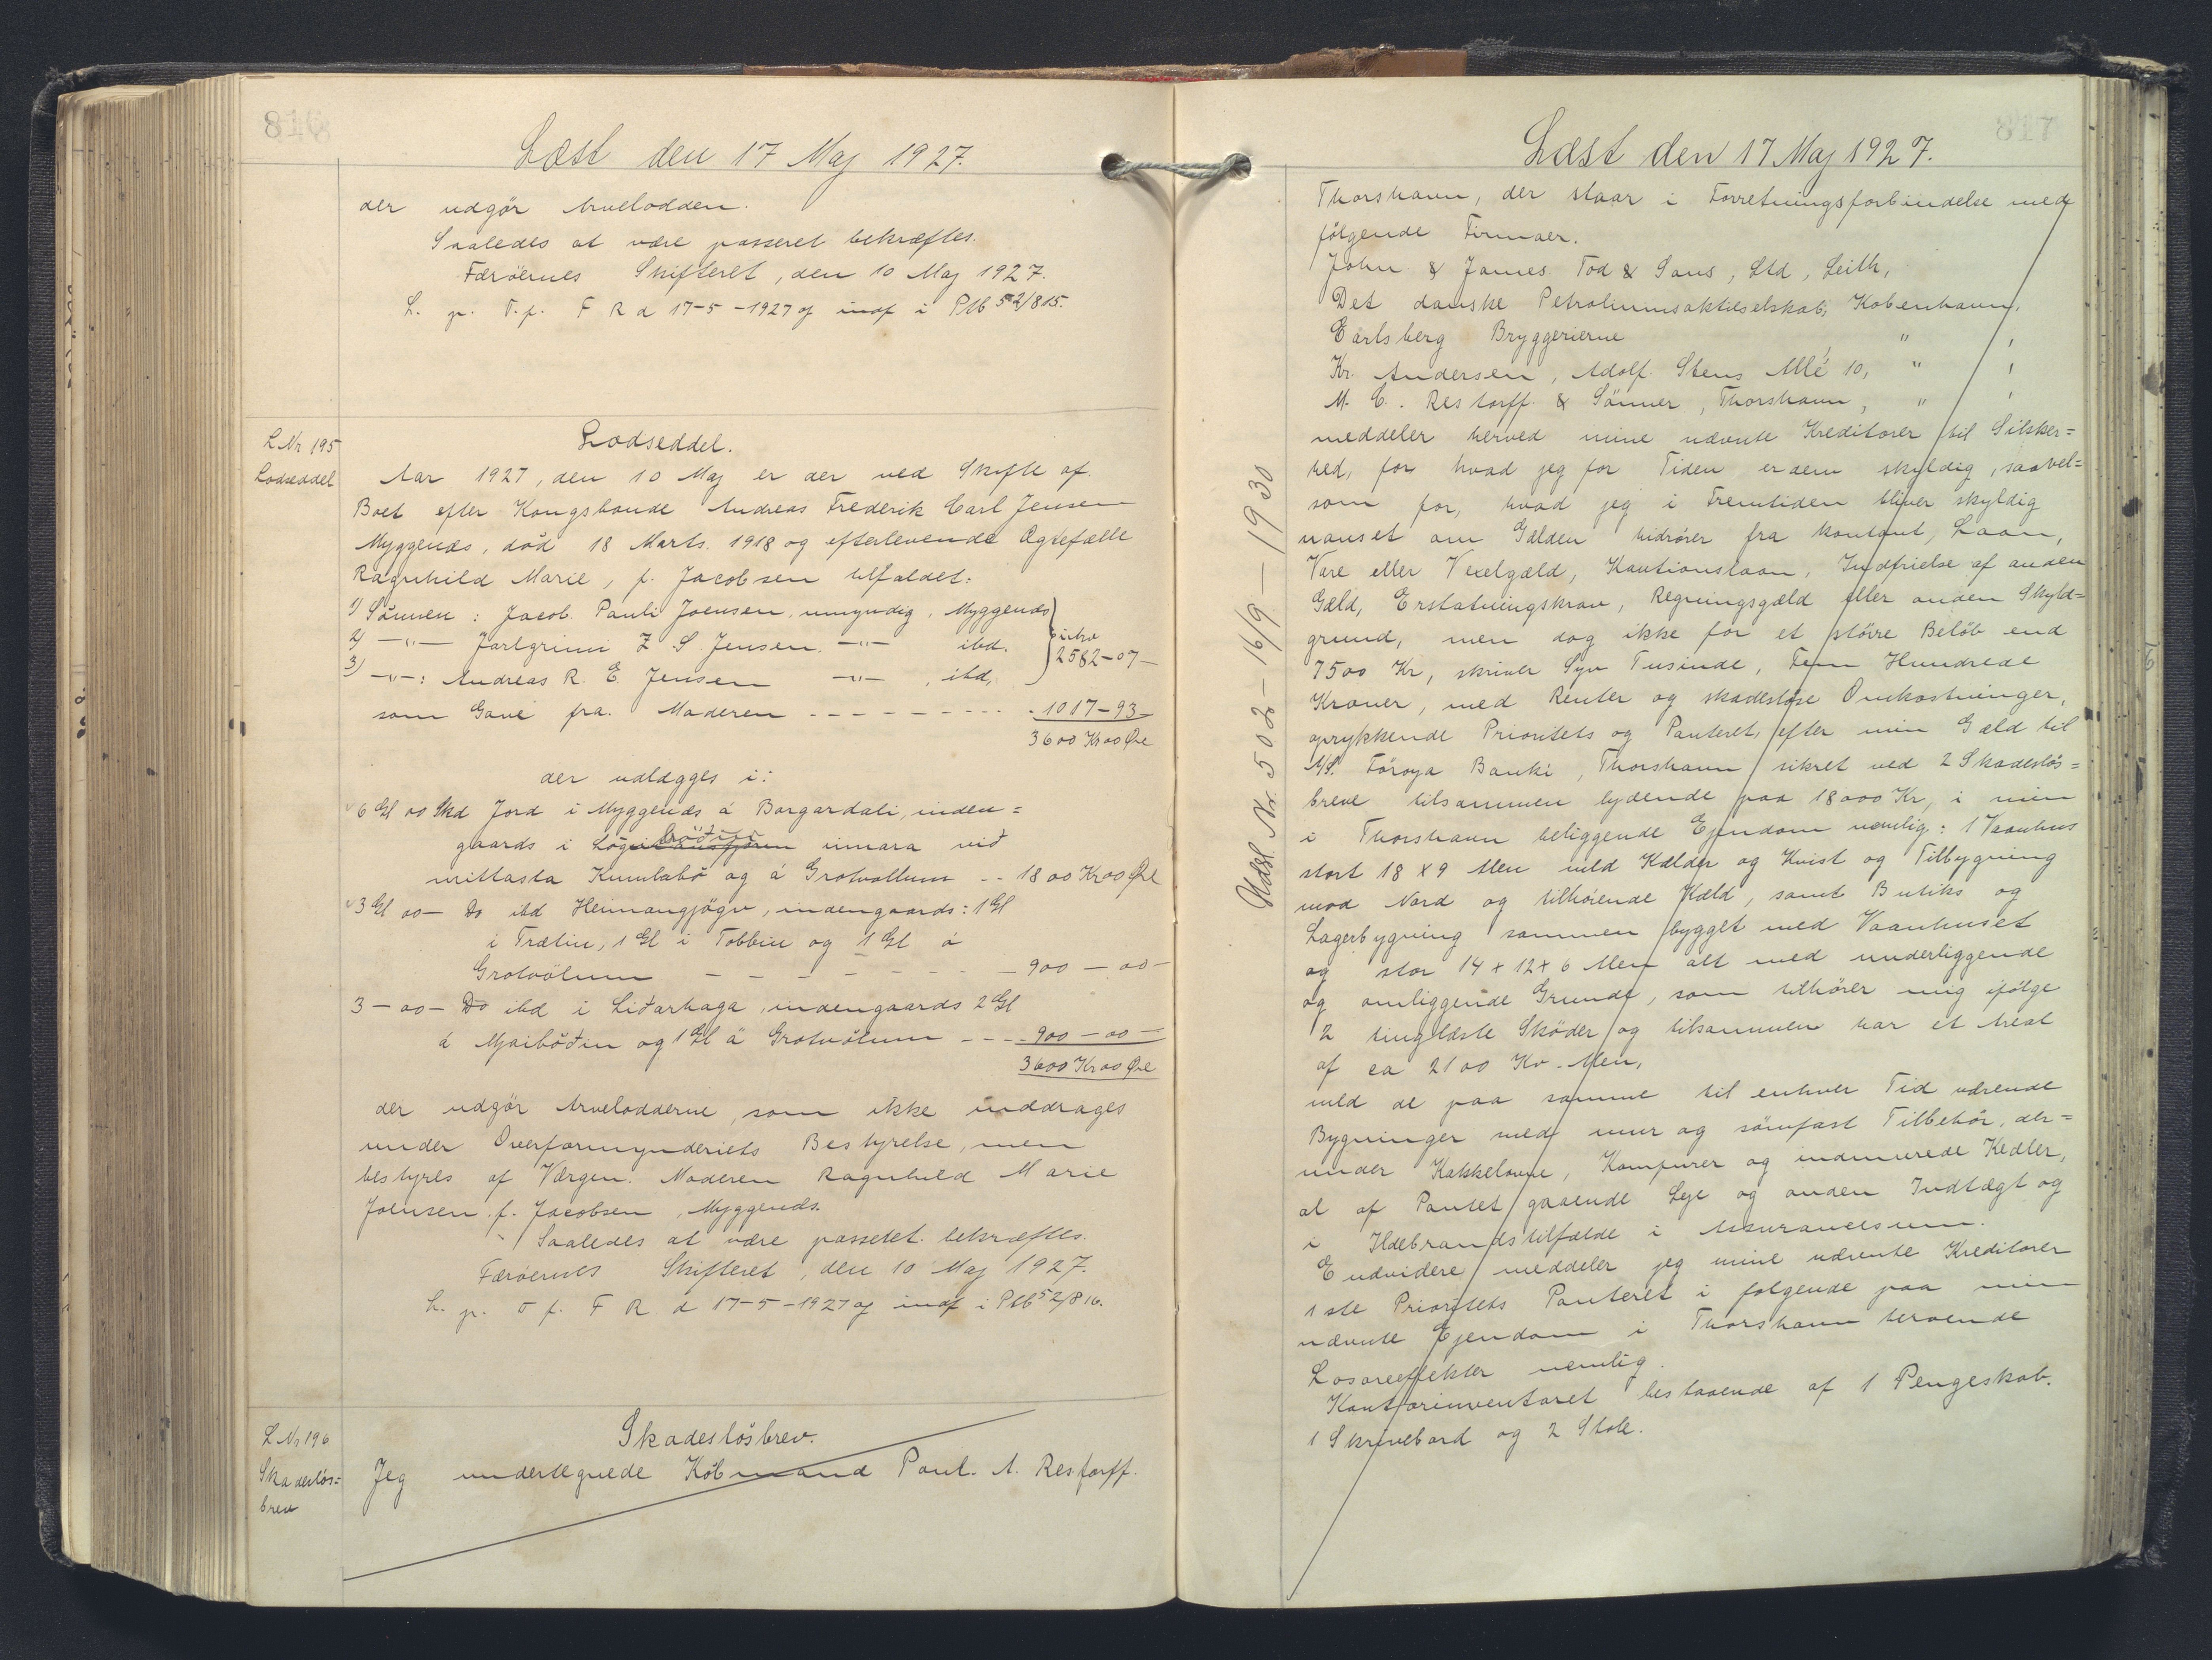 Læst den 17 Maj 1927.
der udgör Arvelodden.
Saaledes at være passeret bekræftes.
Færöernes Skifteret, den 10 Maj 1927.
L. p. T. p. F R d 17-5-1927 og indf i Ptb 52/815.
L Nr 195
Lodseddel
Lodseddel.
Aar 1927, den 10 Maj er der ved Skifte af
Boet efter Kongsbonde Andreas Frederik Carl Jensen
Myggenæs, död 18 Marts. 1918 og efterlevende Ægtefælle
Ragnhild Marie, f. Jacobsen tilfaldet:
1) Sönnen: Jacob. Pauli Joensen, umyndig, Myggenæs
2) —"— Jarlgrim Z. S. Jensen. —"— ibd.
3) —"—: Andreas R. E. Jensen —"—, ibd,
2582-07-
som Gave fra. Moderen - - - - - - - - - 1017-93
3600 Kr 00 Øre
der udlægges i:
6 Gl 00 Skd Jord i Myggenæs á Borgardali, inden=
gaards i innara við
mittasta Kumlabö og á Grotvollum - - 1800 Kr 00 Øre
3 Gl 00 — Do ibd Heimangjógv, indengaards: 1 Gl
i Trætin, 1 Gl i Tobbin og 1 Gl á
Grotvölum - - - - - - - - 900 — 00 —
3 — 00 — Do ibd i Liðarhaga, indengaards 2 Gl
á Mjaiböðin og 1 Gl á Grotvölum - - - 900 — 00 —
3600 Kr 00 Øre
der udgör Arvelodderne, som ikke inddrages
under Overformynderiets Bestyrelse, men
bestyres af Værgen. Moderen Ragnhild Marie
Joensen f. Jacobsen, Myggenæs.
Saaledes at være passeret. bekræftes.
Færöernes Skifteret, den 10 Maj 1927.
L. p. T p. F R. d 17-5-1927 og indf i Ptb 52/816.
L Nr 196
Skadeslös=
brev
Skadeslösbrev.
Jeg undertegnede Köbmand Poul. A. Restorff.
Læst den 17 Maj 1927.
Thorshavn, der staar i Forretningsforbindelse med
fölgende Firmaer.
John & James Tod & Sons, Ltd, Leith,
Det danske Petroliumsaktieselskab, Kobenhavn,
Carlsberg Bryggerierne, " ,
Kr. Andersen, Adolf. Stens Allé 10, " ,
M. C. Restorff & Sönner, Thorshavn, " ,
meddeler herved mine nævnte Kreditorer til Sikker=
hed, for hvad jeg for Tiden er dem skyldig, saavel=
som for, hvad jeg i Fremtiden bliver skyldig
uanset om Gælden hidrører fra kontant, Laan,
Vare eller Vexelgæld, Kautionslaan, Indfrielse af anden
Gæld, Erstatningskrav, Regningsgæld eller anden Skyld=
grund, men dog ikke for et större Belöb end
7500 Kr, skriver Syv Tusinde, Fem Hundrede
Kroner, med Renter og skadeslöse Omkostninger,
oprykkende Prioritets og Panteret, efter min Gæld til
A/S. Föroya Banki, Thorshavn sikret ved 2 Skadeslös=
breve tilsammen lydende paa 18000 Kr, i min
i Thorshavn beliggende Ejendom nemlig: 1 Vaanhus
stort 18 x 9 Alen med Kælder og Kvist og Tilbygning
mod Nord og tilhörende Kæld, samt Butiks og
Lagerbygning sammen bygget med Vaanhuset
og stor 14 x 12 x 6 Alen alt med underliggende
og omliggende Grunde, som tilhörer mig ifölge
2 tinglæste Sköder og tilsammen har et Areal
af ca 2100 Kv. Alen,
med de paa samme til enhver Tid værende
Bygninger med mur og sömfast Tilbehör, der=
under Kakkelovne, Komfurer og indmurede Kedler,
al af Pantet gaaende Leje og anden Indtægt og
i Ildebrandstilfælde i Assurancesum.
Endvidere meddeler jeg mine nævnte Kreditorer
1ste Prioritets Panteret i folgende paa min
nævnte Ejendom i Thorshavn beroende
Losoreeffekter nemlig.
Kontorinventaret bestaaende af 1 Pengeskab.
1 Skrivebord og 2 Stole.
Udsl. Nr. 502 - 16/9 - 1930